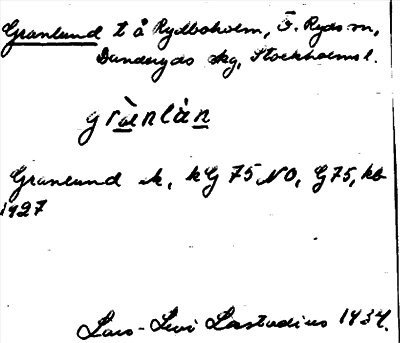 Granlund t å Rydboholm, Ö. Ryds sn,
Danderyds skg, Stockholms l.
gràenlàn
Granlund k, kG 75 NO, G 75, kb
1927
Lars-Levi Læstadius 1934.